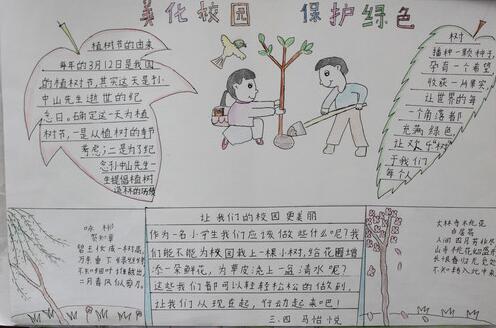 美化校园 保护绿色
植树节的由来
每年的3月12日是我国
的植树节,其实这天是孙
中山先生逝世的纪
念日。确定这一天为植
树节,一是从植树的季节
考虑;二是为了纪
念孙中山先生一
生提倡植树
造林的功绩
树
播种一颗种子,
孕育一个希望
收获一从果实,
让世界的每
一个角落都
充满绿色,
让欢乐"树"
于我们
每个人
咏柳
贺知章
碧玉妆成一树高,
万条垂下绿丝绦
不知细叶谁裁出,
二月春风似剪刀。
让我们的校园更美丽
作为一名小学生我们应该做些什么呢?我
们能不能为校园栽上一棵小树,给花圃增
添一朵鲜花,为草皮浇上一盆清水呢?
这些我们都可以轻轻松松的做到,
让我们从现在起,行动起来吧!
三.四 马怡悦
大林寺桃花
白居易
人间四月芳菲尽
山寺桃花始盛开
长恨春归无觅处
不知转入此中来